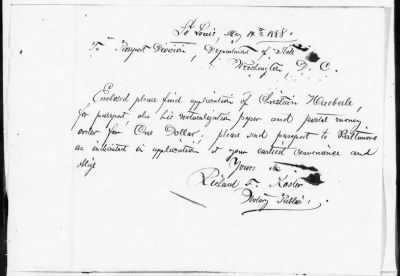 St Louis, May 14th 1888.
To Passport Division, Department of State
Washington, D. C.
Enclosed please find application of Christian Haeberle,
for passport also his naturalization paper and postal money
order for One Dollar; please send passport to Baltimore
as indicated in application, at your earliest convenience and
oblige
Yours
Richard F. Koster
Notary Public.